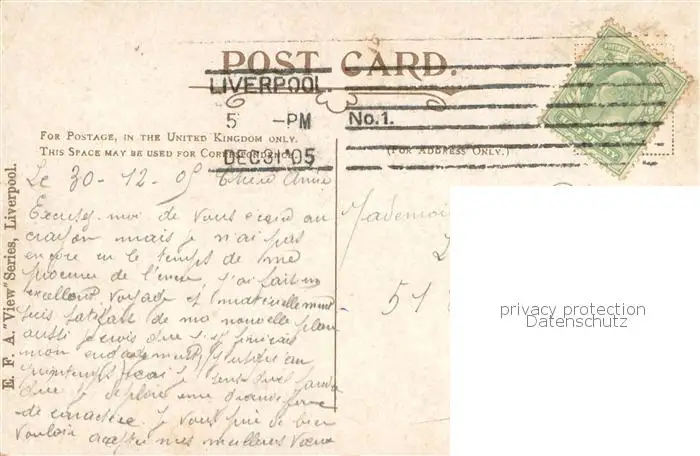 POST CARD.
LIVERPOOL
5 -PM
No.1.
DEC 31 05
FOR POSTAGE, IN THE UNITED KINGDOM ONLY.
THIS SPACE MAY BE USED FOR CORRESPONDENCE.
(FOR ADDRESS ONLY.)
E. F. A. "View" Series, Liverpool.
Le 30-12-05 Chère Amie
Excusez-moi de vous écrire au
crayon mais je n'ai pas
encore eu le temps de me
procurer de l'encre, j'ai fait un
excellent voyage et matériellement
suis satisfait de ma nouvelle place
aussi je crois que si je
mon engagement
printemps
que je déploie une grande force
de caractère. Je vous prie de bien
vouloir accepter mes meilleurs vœux
Mademoi
51
privacy protection
Datenschutz